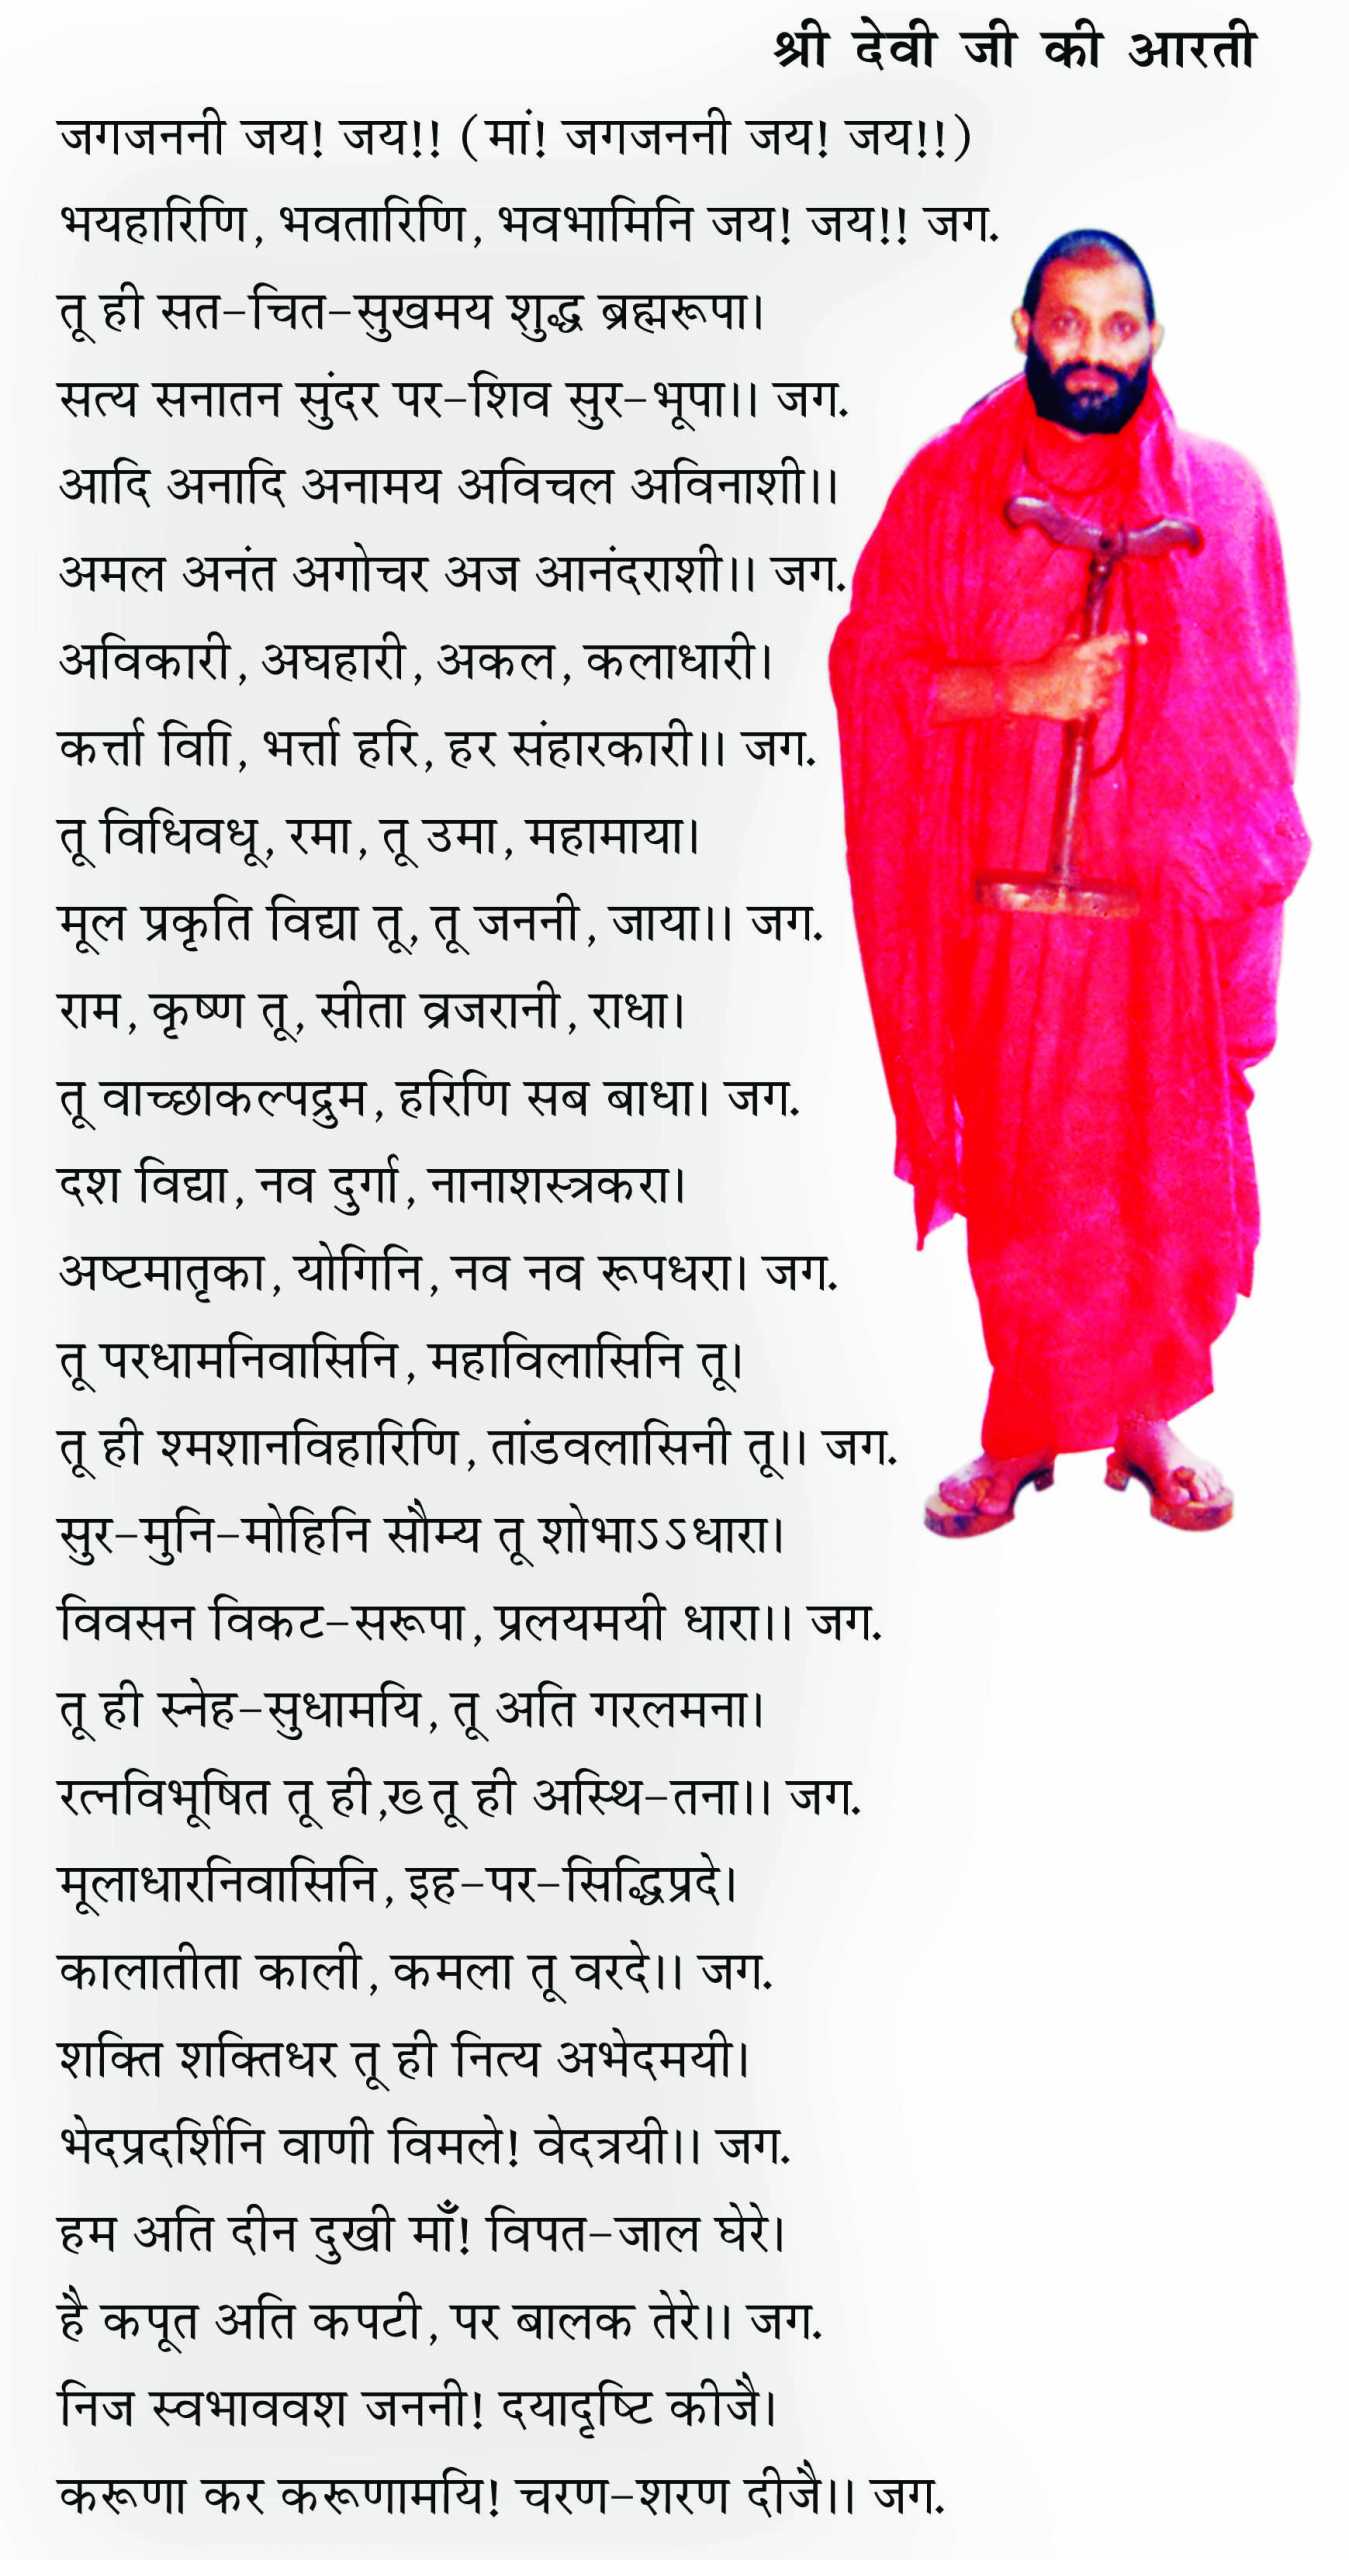 श्री देवी जी की आरती
जगजननी जय! जय!! (मां! जगजननी जय! जय!!)
भयहारिणि, भवतारिणि, भवभामिनि जय! जय!! जग.
तू ही सत-चित-सुखमय शुद्ध ब्रह्मरूपा।
सत्य सनातन सुंदर पर-शिव सुर-भूपा।। जग.
आदि अनादि अनामय अविचल अविनाशी।।
अमल अनंत अगोचर अज आनंदराशी।। जग.
अविकारी, अघहारी, अकल, कलाधारी।
कर्त्ता विाि, भर्त्ता हरि, हर संहारकारी।। जग.
तू विधिवधू, रमा, तू उमा, महामाया।
मूल प्रकृति विद्या तू, तू जननी, जाया।। जग.
राम, कृष्ण तू, सीता व्रजरानी, राधा।
तू वाच्छाकल्पद्रुम, हरिणि सब बाधा। जग.
दश विद्या, नव दुर्गा, नानाशस्त्रकरा।
अष्टमातृका, योगिनि, नव नव रूपधरा। जग.
तू परधामनिवासिनि, महाविलासिनि तू।
तू ही श्मशानविहारिणि, तांडवलासिनी तू।। जग.
सुर-मुनि-मोहिनि सौम्य तू शोभाऽऽधारा।
विवसन विकट-सरूपा, प्रलयमयी धारा।। जग.
तू ही स्नेह-सुधामयि, तू अति गरलमना।
रत्नविभूषित तू ही,ख्‍ तू ही अस्थि-तना।। जग.
मूलाधारनिवासिनि, इह-पर-सिद्धिप्रदे।
कालातीता काली, कमला तू वरदे।। जग.
शक्ति शक्तिधर तू ही नित्य अभेदमयी।
भेदप्रदर्शिनि वाणी विमले! वेदत्रयी।। जग.
हम अति दीन दुखी माँ! विपत-जाल घेरे।
है कपूत अति कपटी, पर बालक तेरे।। जग.
निज स्वभाववश जननी! दयादृष्टि कीजै।
करूणा कर करूणामयि! चरण-शरण दीजै।। जग.